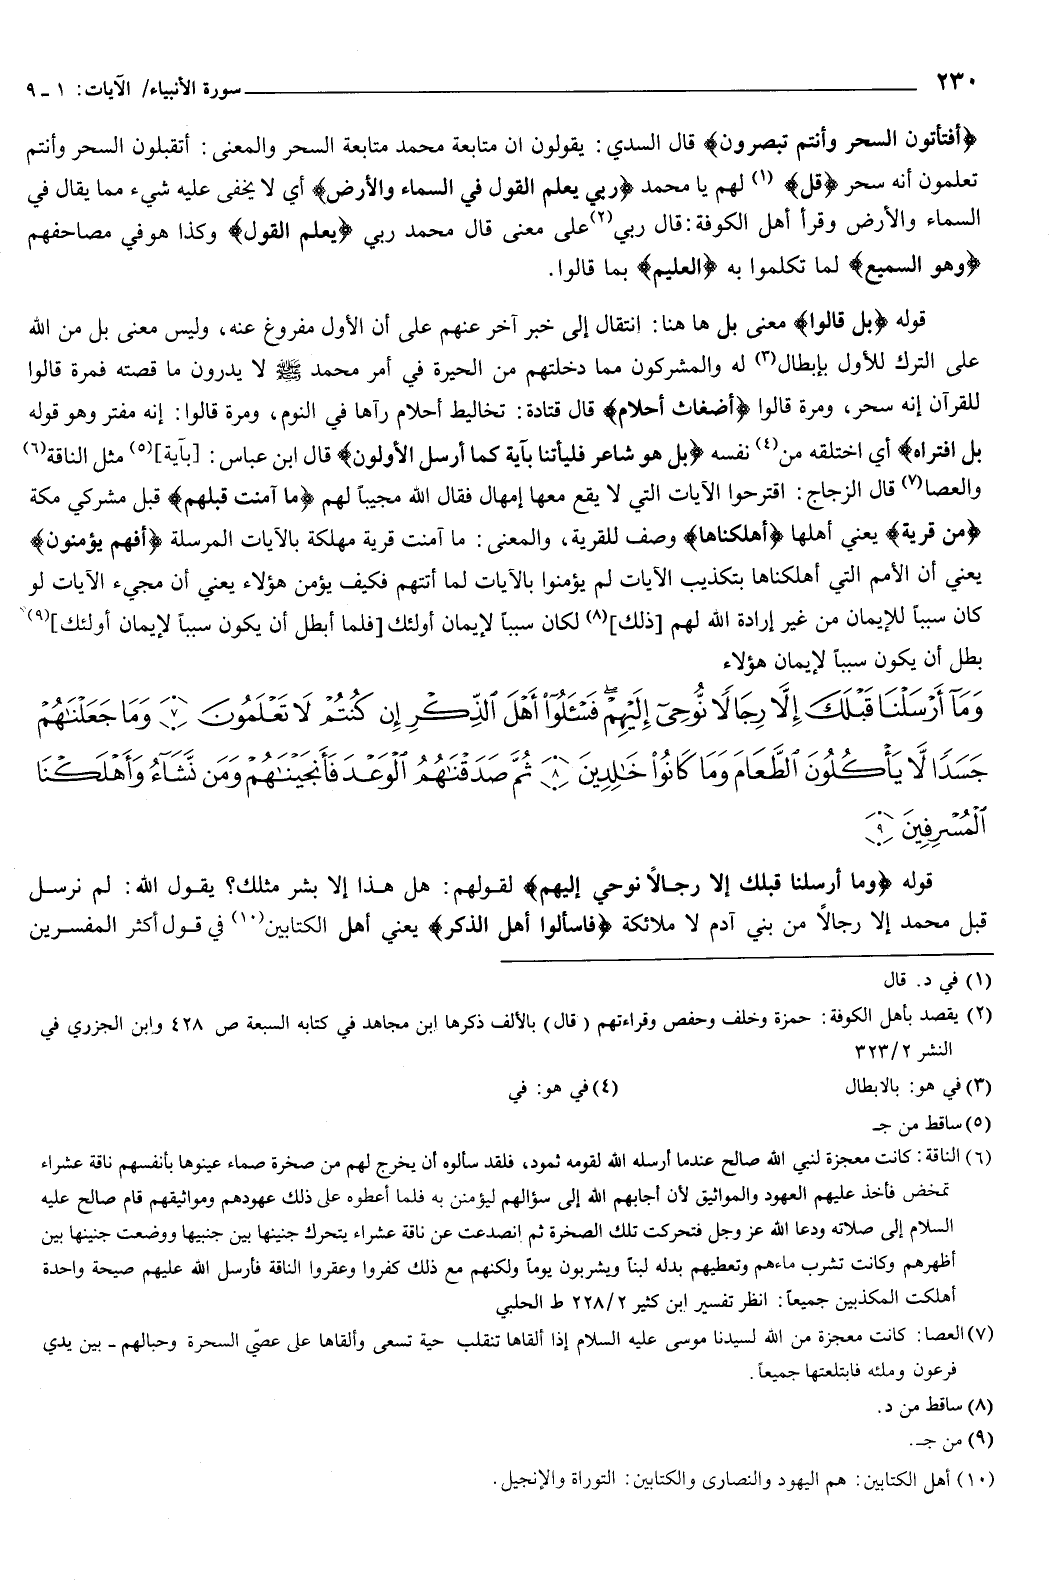 ٢٣٠ سورة الأنبياء/ الآيات: ١ ـ ٩
﴿أفتأتون السحر وأنتم تبصرون﴾ قال السدي: يقولون ان متابعة محمد متابعة السحر والمعنى: أتقبلون السحر وأنتم
تعلمون أنه سحر ﴿قل﴾ (١) لهم يا محمد ﴿ربي يعلم القول في السماء والأرض﴾ أي لا يخفى عليه شيء مما يقال في
السماء والأرض وقرأ أهل الكوفة: قال ربي(٢) على معنى قال محمد ربي ﴿يعلم القول﴾ وكذا هو في مصاحفهم
﴿وهو السميع﴾ لما تكلموا به ﴿العليم﴾ بما قالوا.
قوله ﴿بل قالوا﴾ معنى بل ها هنا: انتقال إلى خبر آخر عنهم على أن الأول مفروغ عنه، وليس معنى بل من الله
على الترك للأول بإبطال(٣) له والمشركون مما دخلتهم من الحيرة في أمر محمد ﷺ لا يدرون ما قصته فمرة قالوا
للقرآن إنه سحر، ومرة قالوا ﴿أضغاث أحلام﴾ قال قتادة: تخاليط أحلام رآها في النوم، ومرة قالوا: إنه مفتر وهو قوله
بل افتراه﴾ أي اختلقه من(٤) نفسه ﴿بل هو شاعر فليأتنا بآية كما أرسل الأولون﴾ قال ابن عباس: [بآية](٥) مثل الناقة(٦)
والعصا(٧) قال الزجاج: اقترحوا الآيات التي لا يقع معها إمهال فقال الله مجيباً لهم ﴿ما آمنت قبلهم﴾ قبل مشركي مكة
﴿من قرية﴾ يعني أهلها ﴿أهلكناها﴾ وصف للقرية، والمعنى: ما آمنت قرية مهلكة بالآيات المرسلة ﴿أفهم يؤمنون﴾
يعني أن الأمم التي أهلكناها بتكذيب الآيات لم يؤمنوا بالآيات لما أتتهم فكيف يؤمن هؤلاء يعني أن مجيء الآيات لو
كان سبباً للإيمان من غير إرادة الله لهم [ذلك](٨) لكان سبباً لإيمان أولئك [فلما أبطل أن يكون سبباً لإيمان أولئك](٩)
بطل أن يكون سبباً لإيمان هؤلاء
وَمَآ أَرْسَلْنَا قَبْلَكَ إِلَّا رِجَالًا نُّوحِىٓ إِلَيْهِمْ ۖ فَسْـَٔلُوٓا۟ أَهْلَ ٱلذِّكْرِ إِن كُنتُمْ لَا تَعْلَمُونَ ٧ وَمَا جَعَلْنَـٰهُمْ
جَسَدًا لَّا يَأْكُلُونَ ٱلطَّعَامَ وَمَا كَانُوا۟ خَـٰلِدِينَ ٨ ثُمَّ صَدَقْنَـٰهُمُ ٱلْوَعْدَ فَأَنجَيْنَـٰهُمْ وَمَن نَّشَآءُ وَأَهْلَكْنَا
ٱلْمُسْرِفِينَ ٩
قوله ﴿وما أرسلنا قبلك إلا رجالاً نوحي إليهم﴾ لقولهم: هل هذا إلا بشر مثلك؟ يقول الله: لم نرسل
قبل محمد إلا رجالاً من بني آدم لا ملائكة ﴿فاسألوا أهل الذكر﴾ يعني أهل الكتابين(١٠) في قول أكثر المفسرين
(١) في د. قال
(٢) يقصد بأهل الكوفة: حمزة وخلف وحفص وقراءتهم (قال) بالألف ذكرها ابن مجاهد في كتابه السبعة ص ٤٢٨ وابن الجزري في
النشر ٣٢٣/٢
(٣) في هو: بالابطال (٤) في هو: في
(٥) ساقط من جـ
(٦) الناقة: كانت معجزة لنبي الله صالح عندما أرسله الله لقومه ثمود، فلقد سألوه أن يخرج لهم من صخرة صماء عينوها بأنفسهم ناقة عشراء
تمخض فأخذ عليهم العهود والمواثيق لأن أجابهم الله إلى سؤالهم ليؤمنن به فلما أعطوه على ذلك عهودهم ومواثيقهم قام صالح عليه
السلام إلى صلاته ودعا الله عز وجل فتحركت تلك الصخرة ثم انصدعت عن ناقة عشراء يتحرك جنينها بين جنبيها ووضعت جنينها بين
أظهرهم وكانت تشرب ماءهم وتعطيهم بدله لبناً ويشربون يوماً ولكنهم مع ذلك كفروا وعقروا الناقة فأرسل الله عليهم صيحة واحدة
أهلكت المكذبين جميعاً: انظر تفسير ابن كثير ٢٢٨/٢ ط الحلبي
(٧) العصا: كانت معجزة من الله لسيدنا موسى عليه السلام إذا ألقاها تنقلب حية تسعى وألقاها على عصيّ السحرة وحبالهم ـ بين يدي
فرعون وملئه فابتلعتها جميعاً.
(٨) ساقط من د.
(٩) من جـ.
(١٠) أهل الكتابين: هم اليهود والنصارى والكتابين: التوراة والإنجيل.